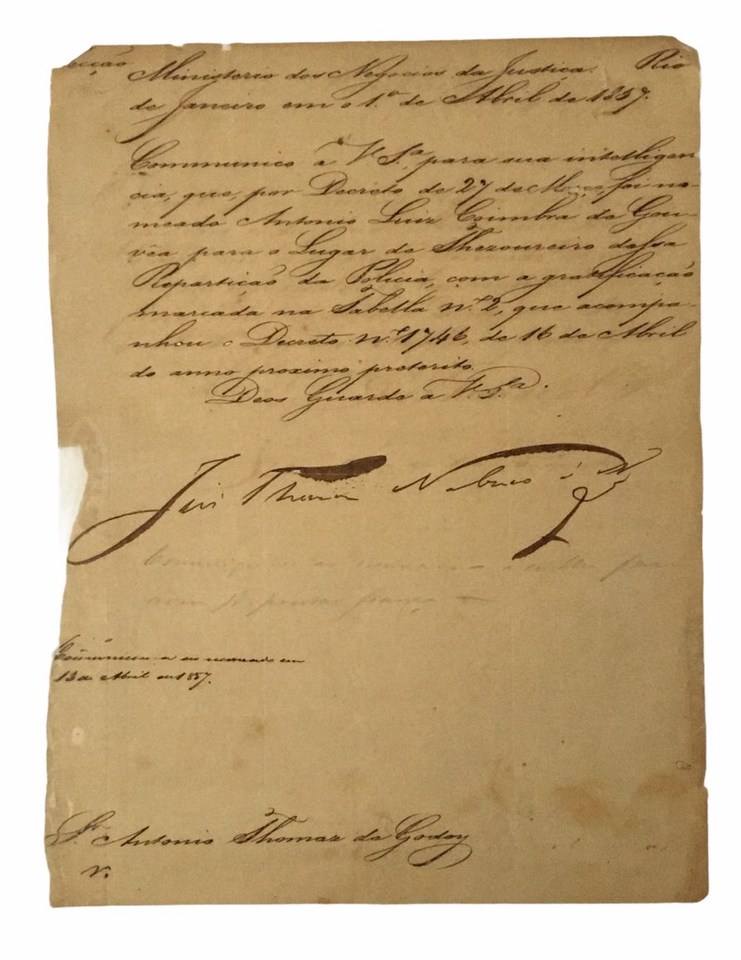 ecção Ministerio dos Negocios da Justiça. Rio
de Janeiro em o 1.º de Abril de 1857.
Communico á V. S.ª para sua intelligen-
cia, que, por Decreto de 27 de Março, foi no-
meado Antonio Luiz Coimbra de Gou-
vêa para o Lugar de Thezoureiro dessa
Repartição da Policia, com a gratificação
marcada na Tabella n.º 2, que acompa-
nhou o Decreto n.º 1746, de 16 de Abril
do anno proximo preterito.
Deos Guarde a V. S.ª.
José Thomaz Nabuco d'A
Communicou-se ao nomeado em
13 de Abril de 1857.
Sr. Antonio Thomaz de Godoy